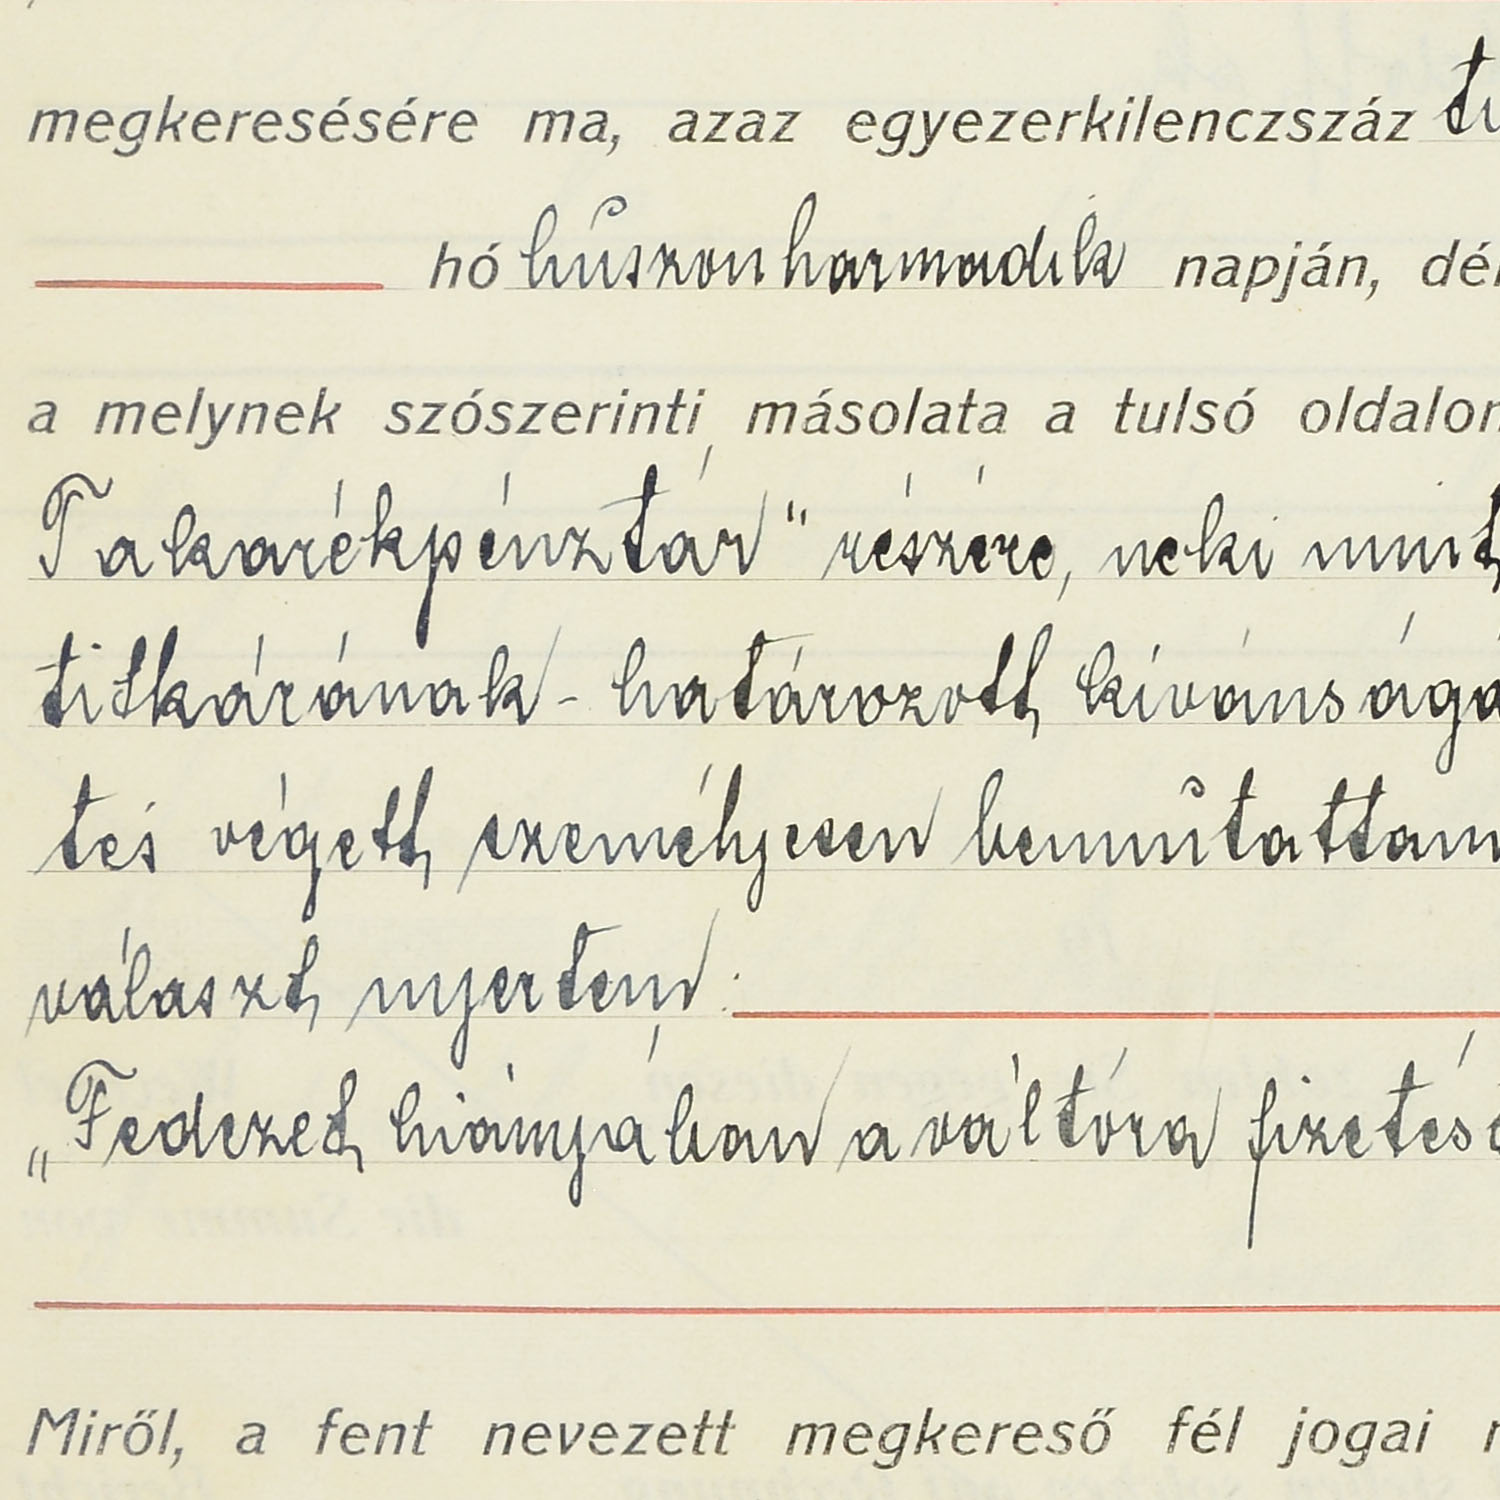 megkeresésére ma, azaz egyezerkilenczszáz
hó húszonharmadik napján,
a melynek szószerinti másolata a tulsó oldalon
Takarékpénztár" részére, neki mint
titkárának - határozott kívánságá
tés végett személyesen bemutattam
választ nyertem:
„Fedezet hiányában a váltóra fizetés
Miről, a fent nevezett megkereső fél jogai